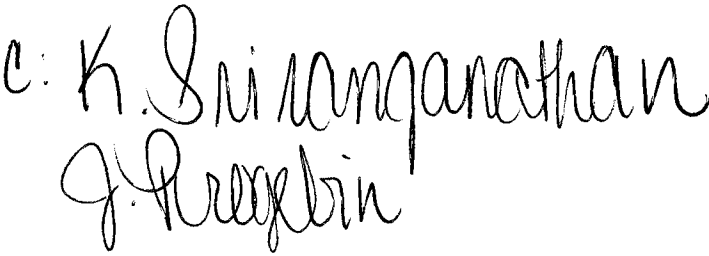 c: K. Sriranganathan
J. Pregelbin